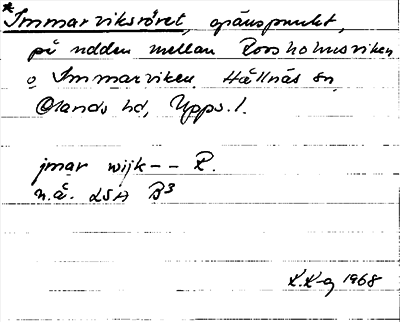 *Immarviksröret, gränspunkt,
på udden mellan Rossholmsviken
o Immarviken. Hållnäs sn,
Olands hd, Upps. l.
jmar wijk-- R.
n.ä. LSA B3
R.K-g 1968